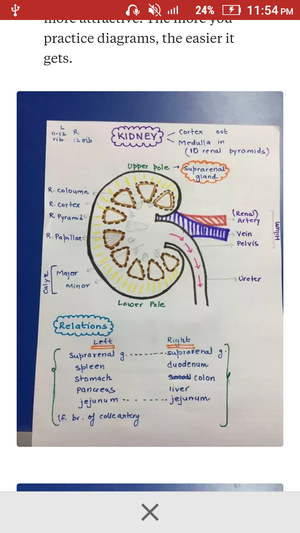 24% 11:54 PM
more attractive. The more you
practice diagrams, the easier it
gets.
L
11-12
rib
R
12 rib
KIDNEY
Cortex out
Medulla in
(10 renal pyramids)
Upper pole
Suprarenal
gland
R. coloumn
R. Cortex
R. Pyramid
R. Papillae
Calyx
Major
minor
(Renal)
Artery
Vein
Pelvis
Hilum
Ureter
Lower Pole
Relations
Left
Right
Suprarenal g. suprarenal g.
spleen duodenum
stomach colon
Pancreas liver
jejunum jejunum
lf. br. of colic artery